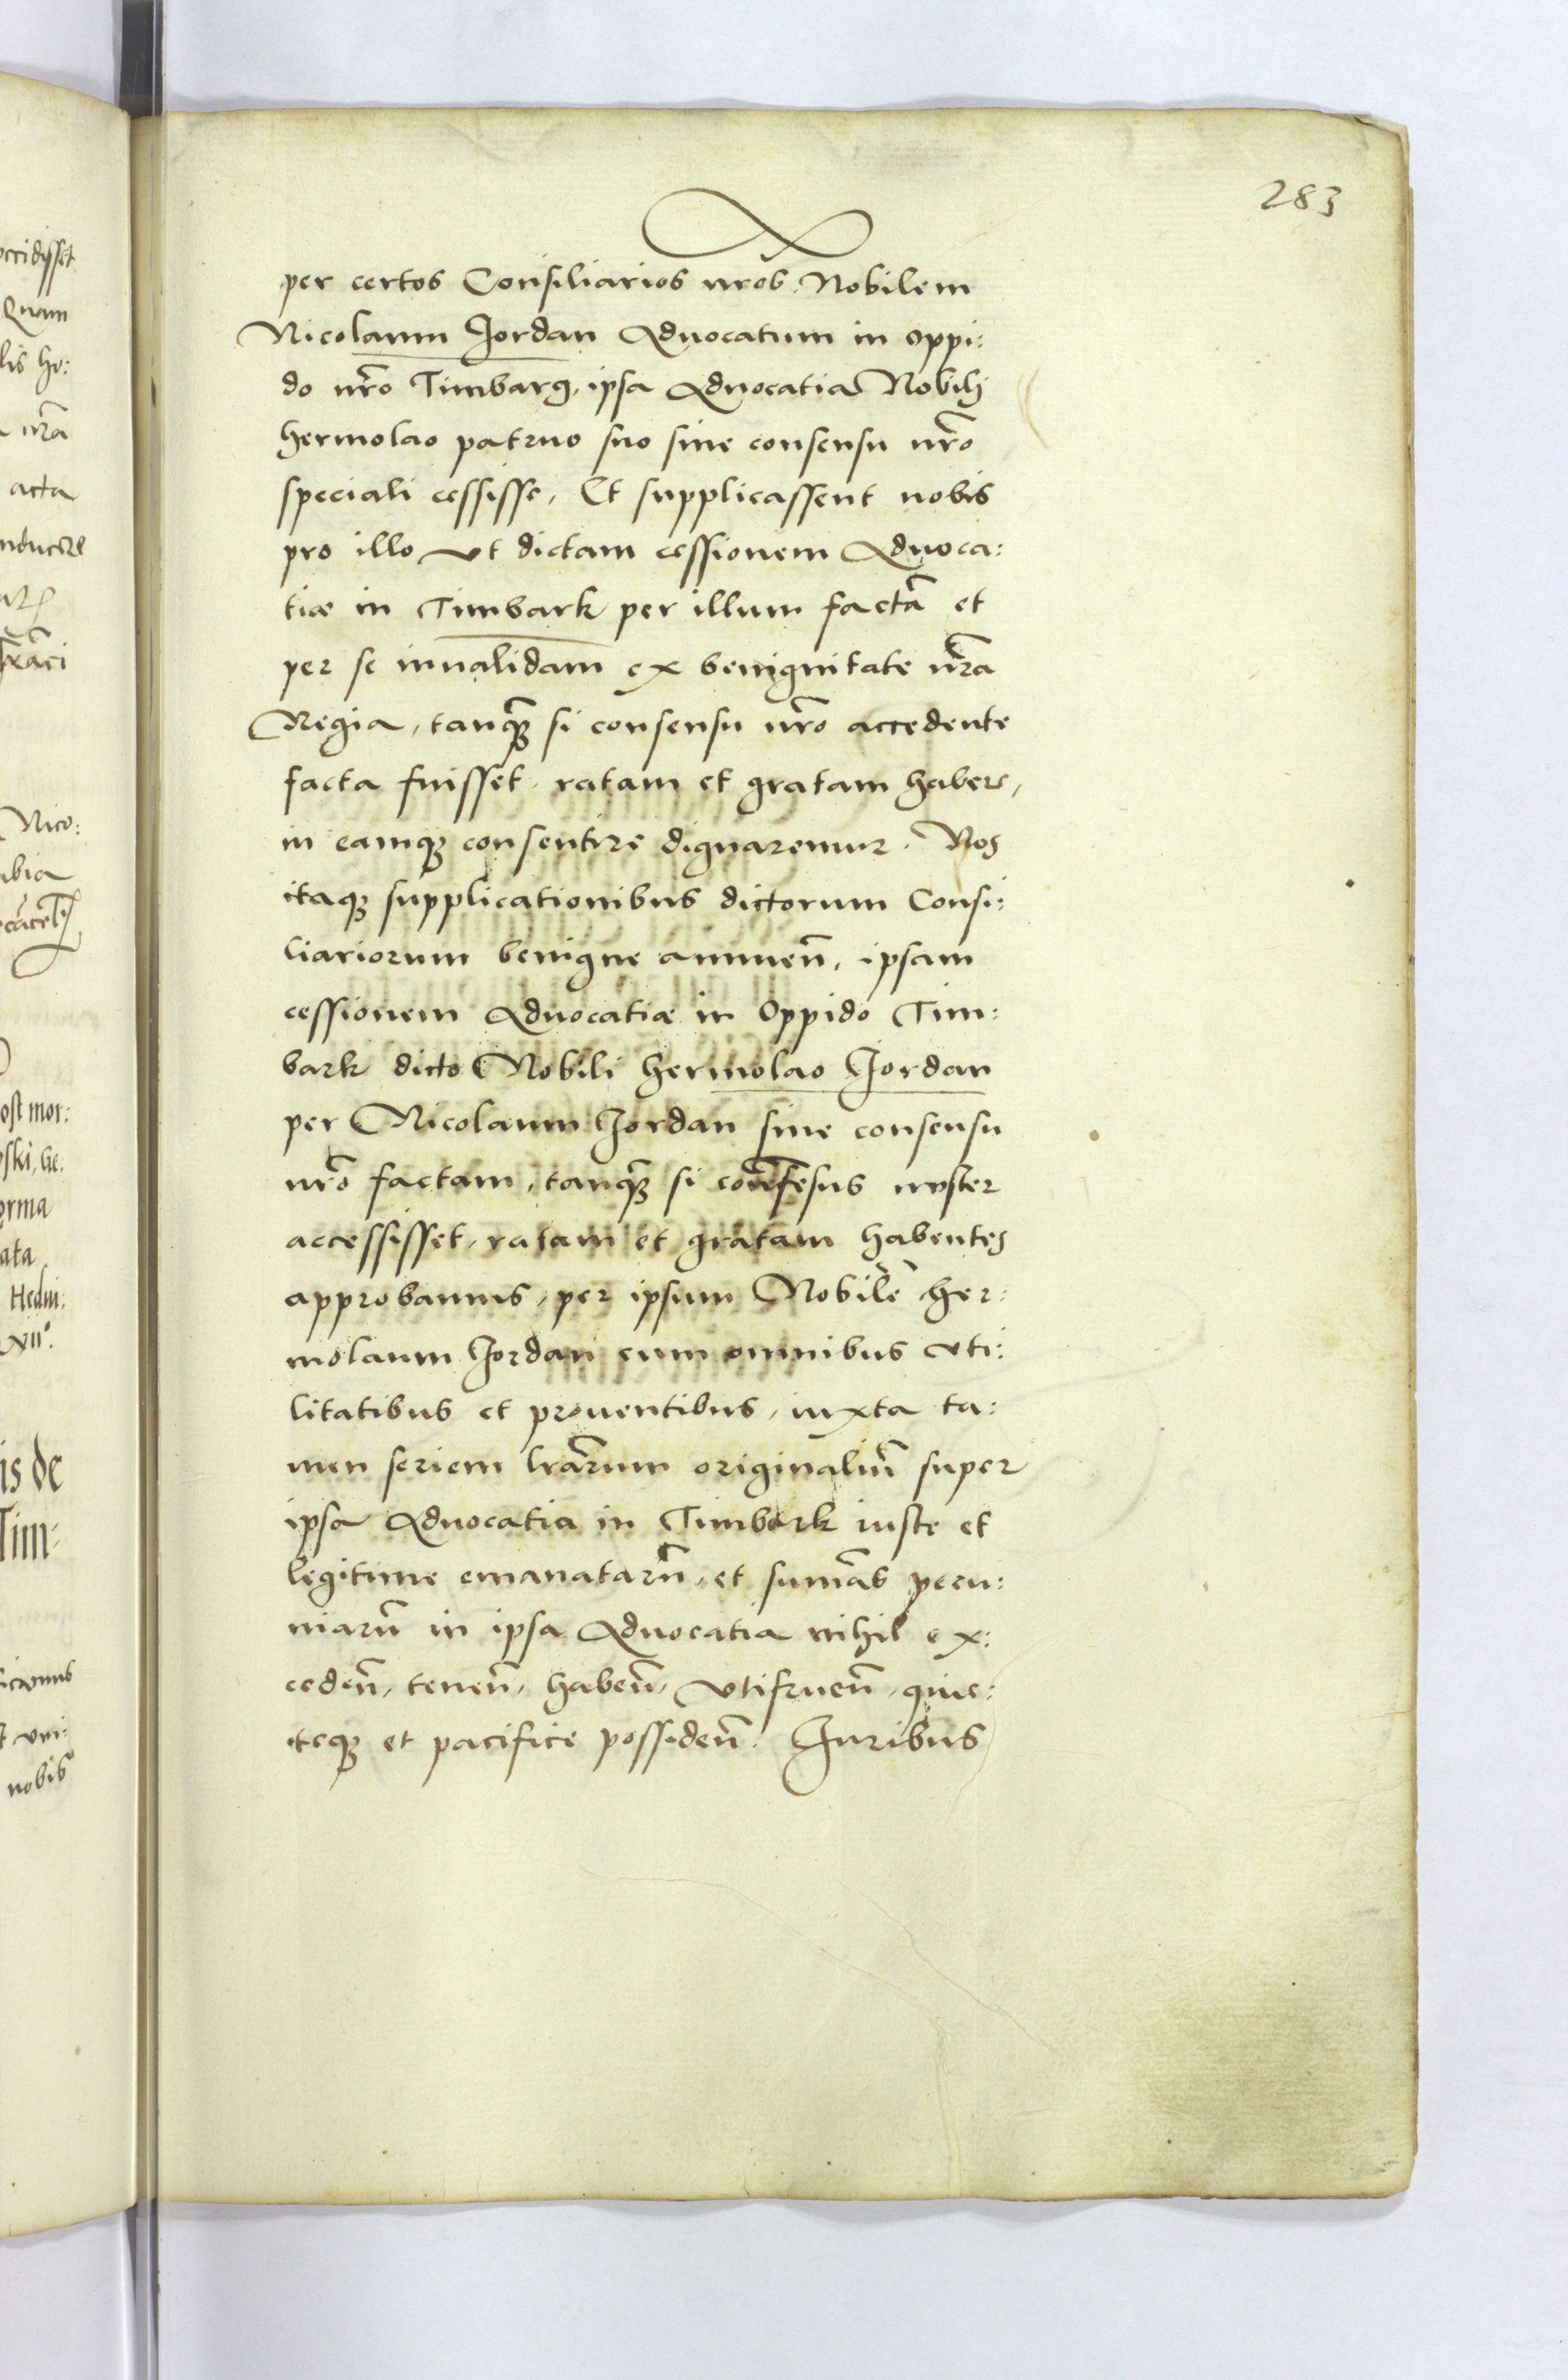 283
per certos Consiliarios nr̃os Nobilem
Nicolaum Jordan Aduocatum in oppi:
do nr̃o Timbarg, ipsa Aduocatia Nobilj
hermolao patruo suo sine consensu nr̃o
speciali cessisse, Et supplicassent nobis
pro illo vt dictam cessionem Aduoca:
tiæ in Timbark per illum factã et
per se inualidam ex benignitate nr̃a
Regia, tanq̃ si consensu nr̃o accedente
facta fuisset ratam et gratam habere,
in eamq; consentire dignaremur. Nos
itaq; supplicationibus dictorum Consi:
liariorum benigne annueñ, ipsam
cessionem Aduocatiæ in Oppido Tim:
bark dicto Nobili hermolao Jordan
per Nicolaum Jordan sine consensu
nr̃o factam, tanq̃ si conse͂sus noster
accessisset, ratam et gratam habentes
approbamus, per ipsum Nobilẽ her:
molaum Jordan cum omnibus vti:
litatibus et prouentibus, iuxta ta:
men seriem lr̃arum originaliũ super
ipsa Aduocatia in Timbark iuste et
legitime emanatarũ, et sum̃as pecu:
niarũ in ipsa Aduocatia nihil ex:
cedeñ, teneñ, habeñ, vtifrueñ, quie:
teq; et pacifice possideñ. Juribus